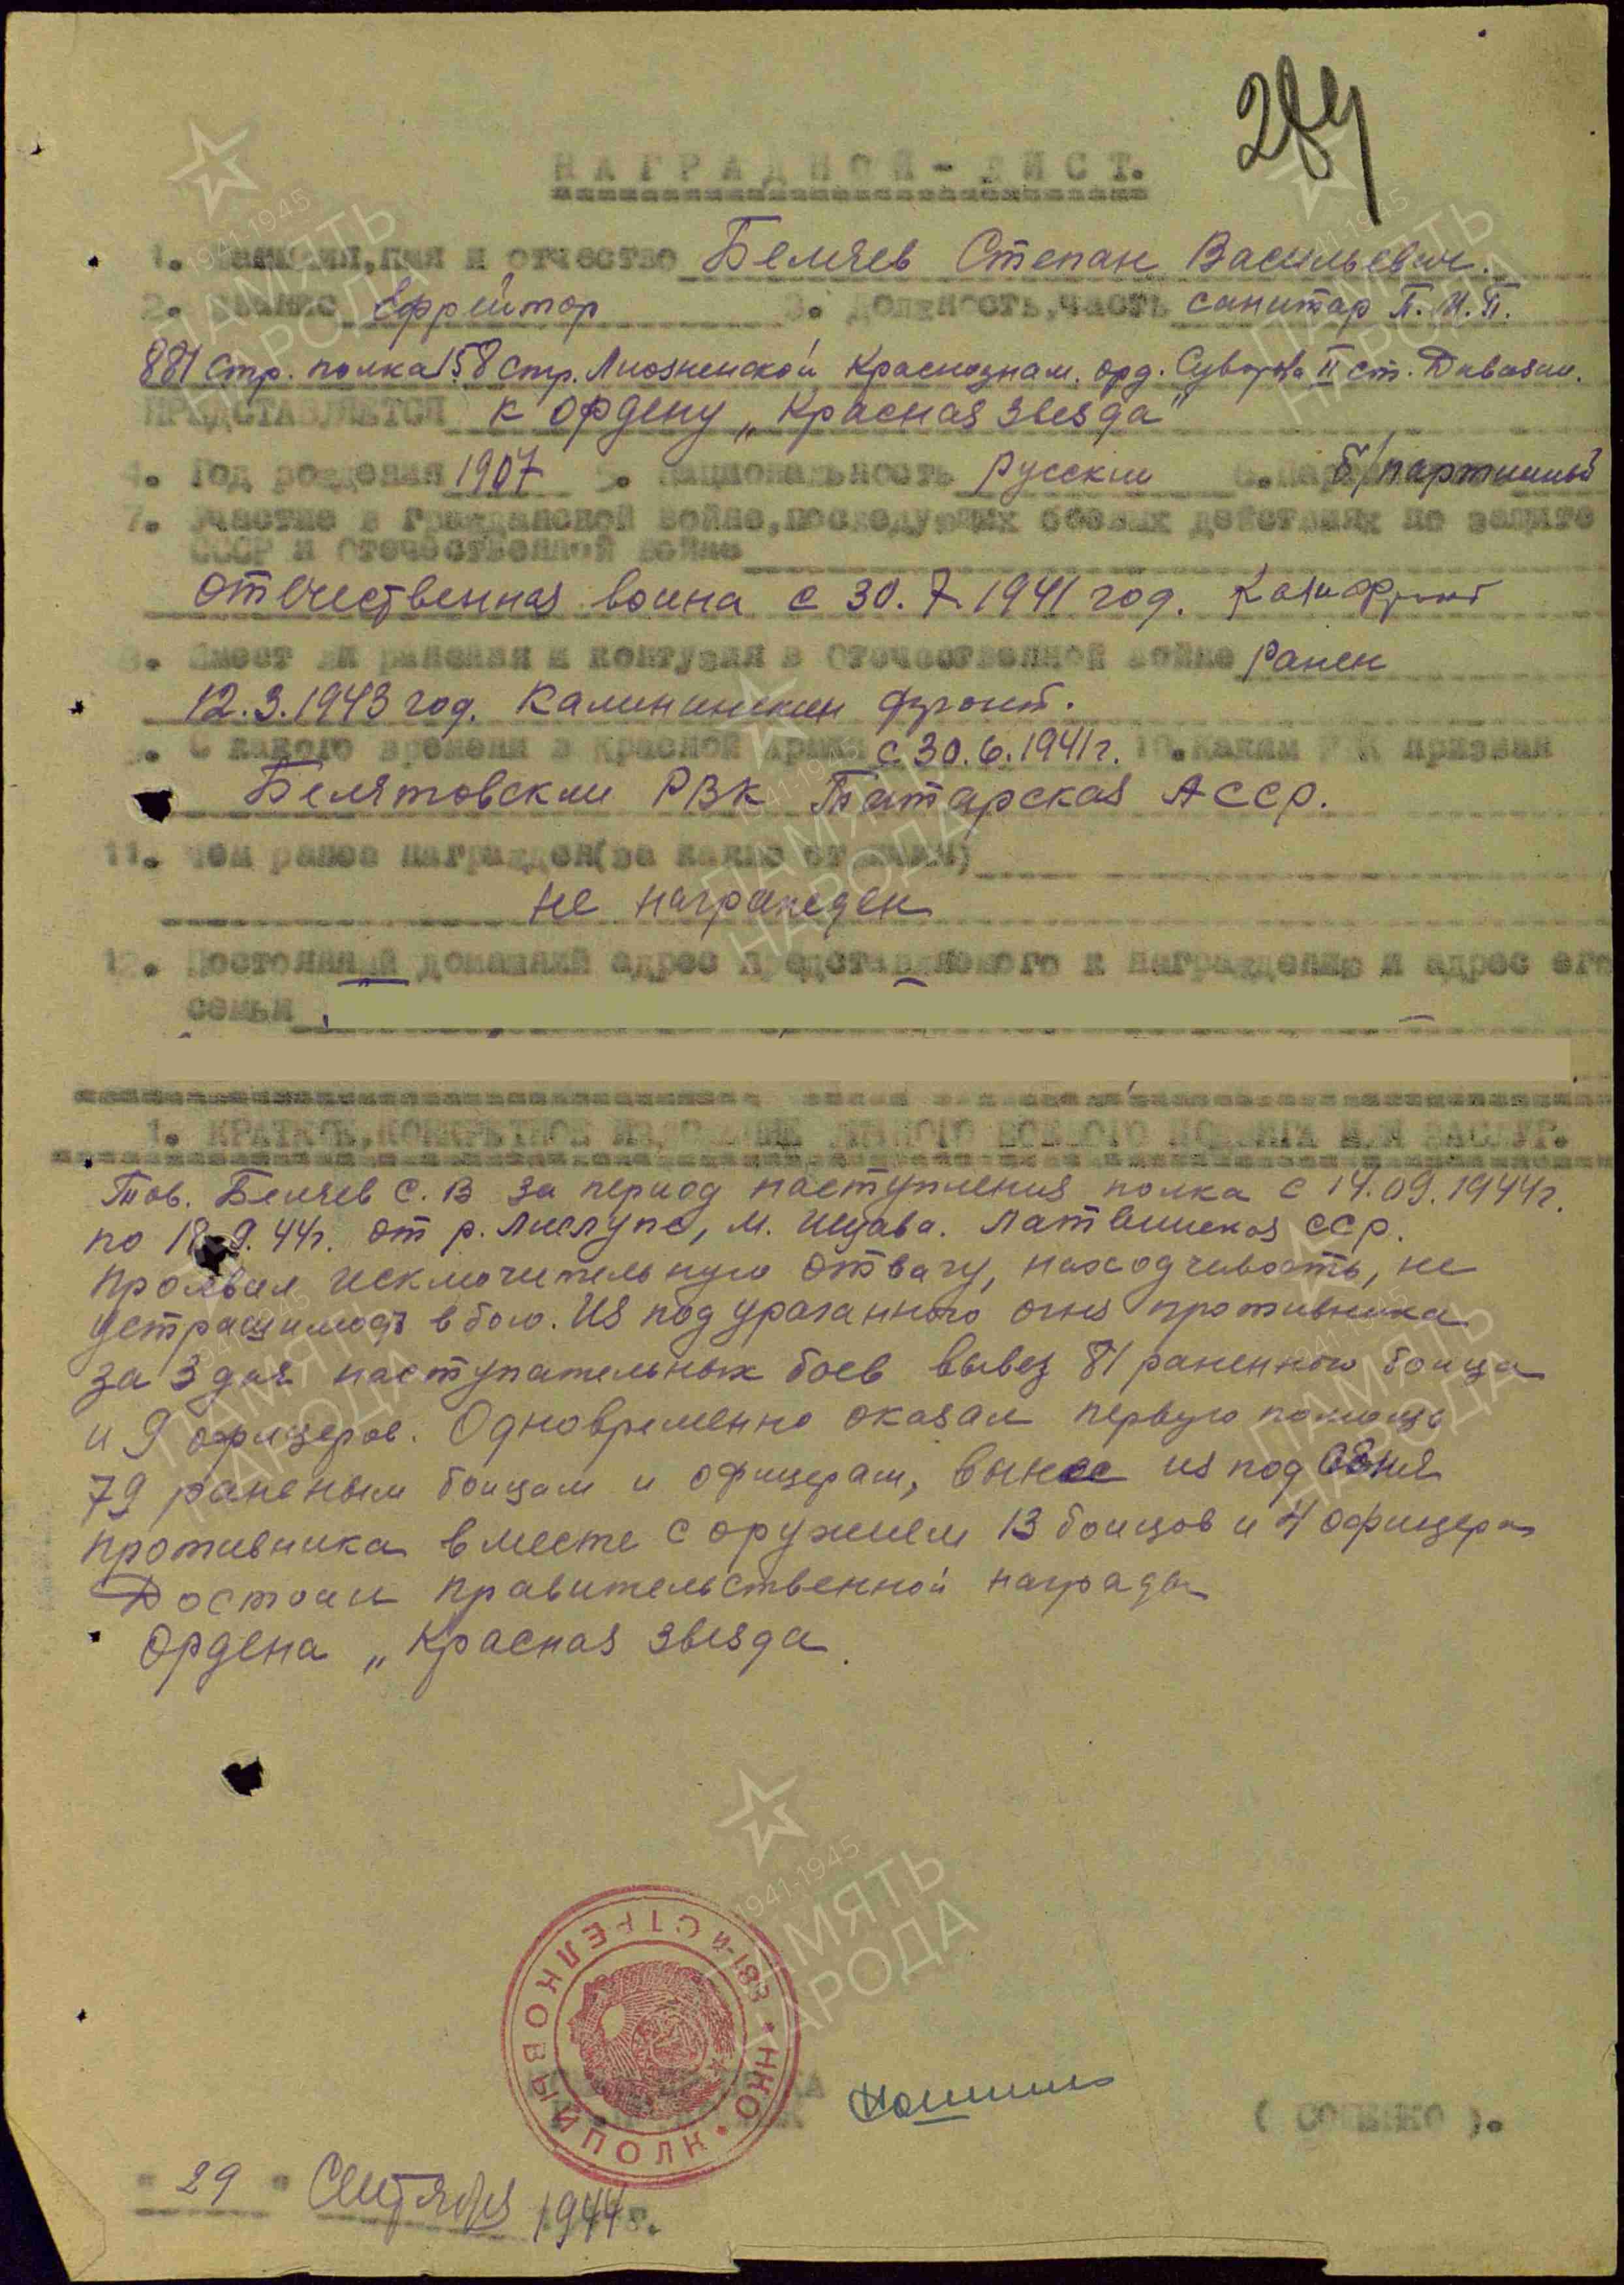 284
НАГРАДНОЙ-ЛИСТ.
1. Фамилия, имя и отчество Беляев Степан Васильевич.
2. Звание Ефрейтор 3. Должность, часть санитар П.М.П.
881 стр. полка 158 стр. Лиозненской Краснознам. орд. Суворова II ст. Дивизии.
ПРЕДСТАВЛЯЕТСЯ к ордену „Красная звезда"
4. Год рождения 1907 5. Национальность русский 6. б/партийный
7. Участие в гражданской войне, последующих боевых действиях по защите
СССР и отечественной войне
отечественная война с 30.7.1941 год.
8. Имеет ли ранения и контузии в Отечественной войне ранен
12.3.1943 год. Калининский фронт.
9. С какого времени в Красной Армии с 30.6.1941 г. 10. Каким РВК призван
РВК Татарская АССР.
11. Чем ранее награжден (за какие отличия)
не награжден
12. Постоянный домашний адрес представляемого к награждению и адрес его
семьи
1. КРАТКОЕ, КОНКРЕТНОЕ ИЗЛОЖЕНИЕ ЛИЧНОГО БОЕВОГО ПОДВИГА ИЛИ ЗАСЛУГ.
Тов. Беляев С. В за период наступления полка с 14.09.1944г.
по 18.9.44г. от р. м. Латвийская ССР.
проявил исключительную отвагу, находчивость, не
устрашимость в бою. Из под ураганного огня противника
за 3 дня наступательных боев вывез 81 раненного бойца
и 9 офицеров. Одновременно оказал первую помощь
79 раненым бойцам и офицерам, вынес из под огня
противника вместе с оружием 13 бойцов и 4 офицера
Достоин правительственной награды
Ордена „Красная звезда.
881-й СТРЕЛКОВЫЙ ПОЛК • НКО •
"29" Сентября 1944 г.
1941-1945
ПАМЯТЬ
НАРОДА